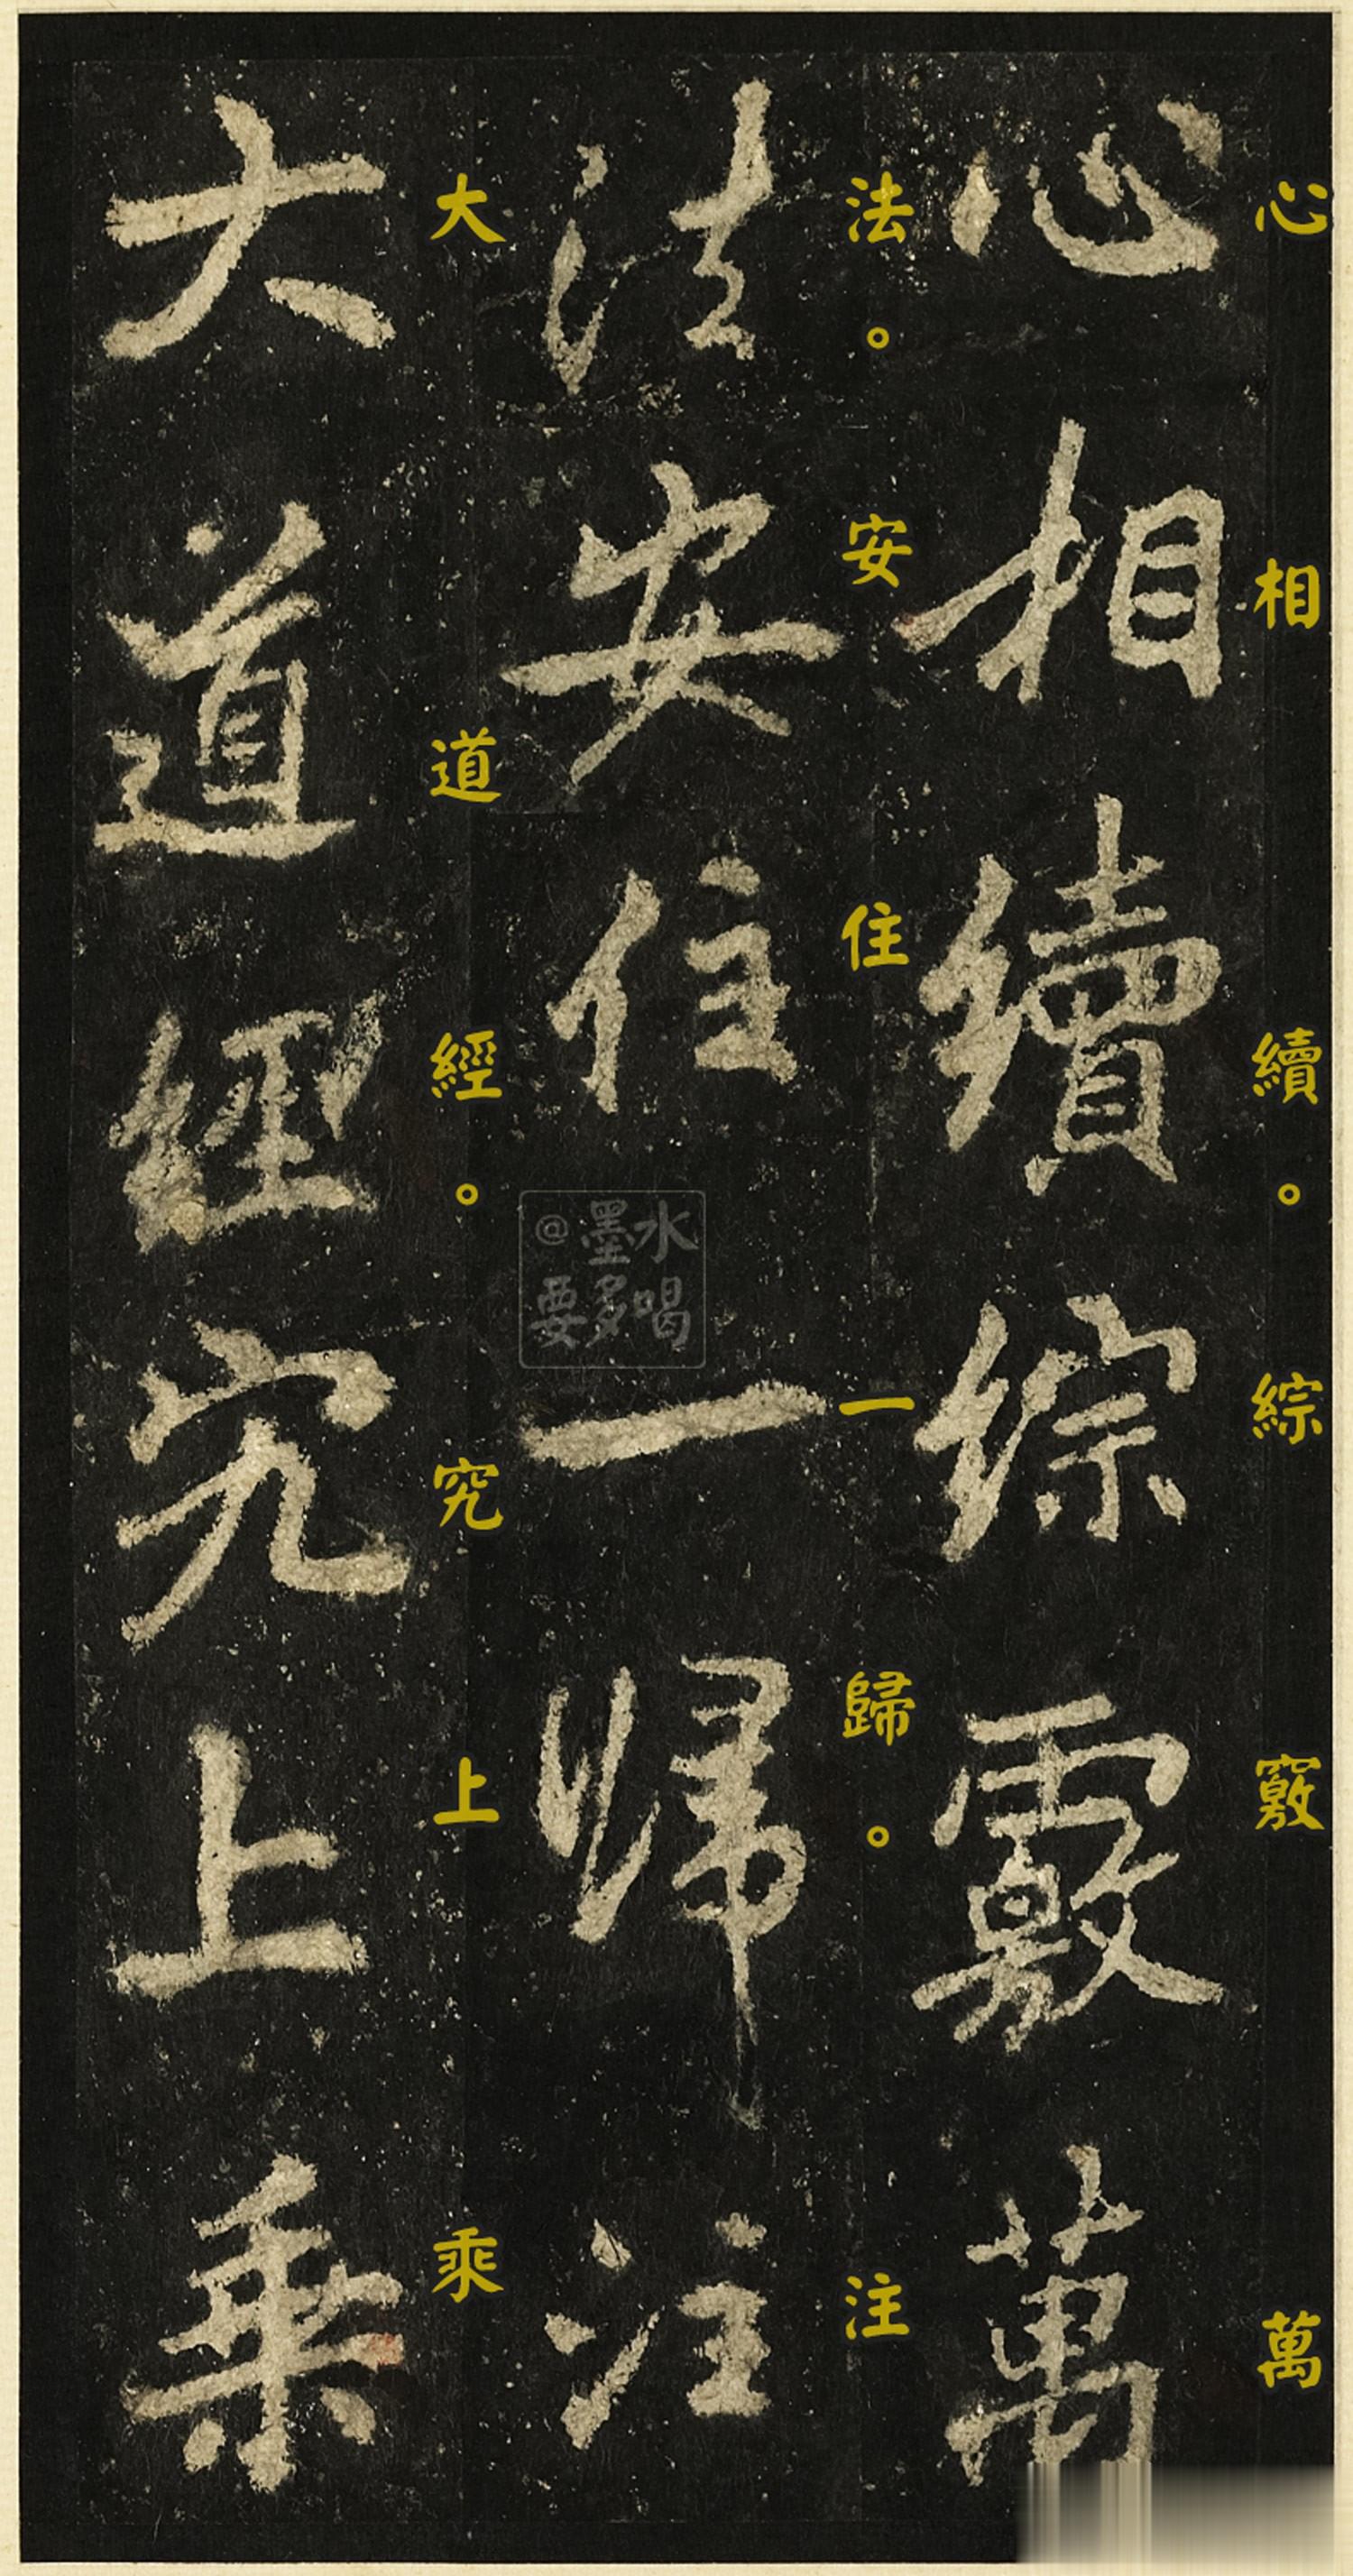 心相續。綜竅萬
心相續綜覈萬
法。安住一歸。注
法安住一歸注
大道經。究上乘
大道經究上乘
@墨水
要多喝